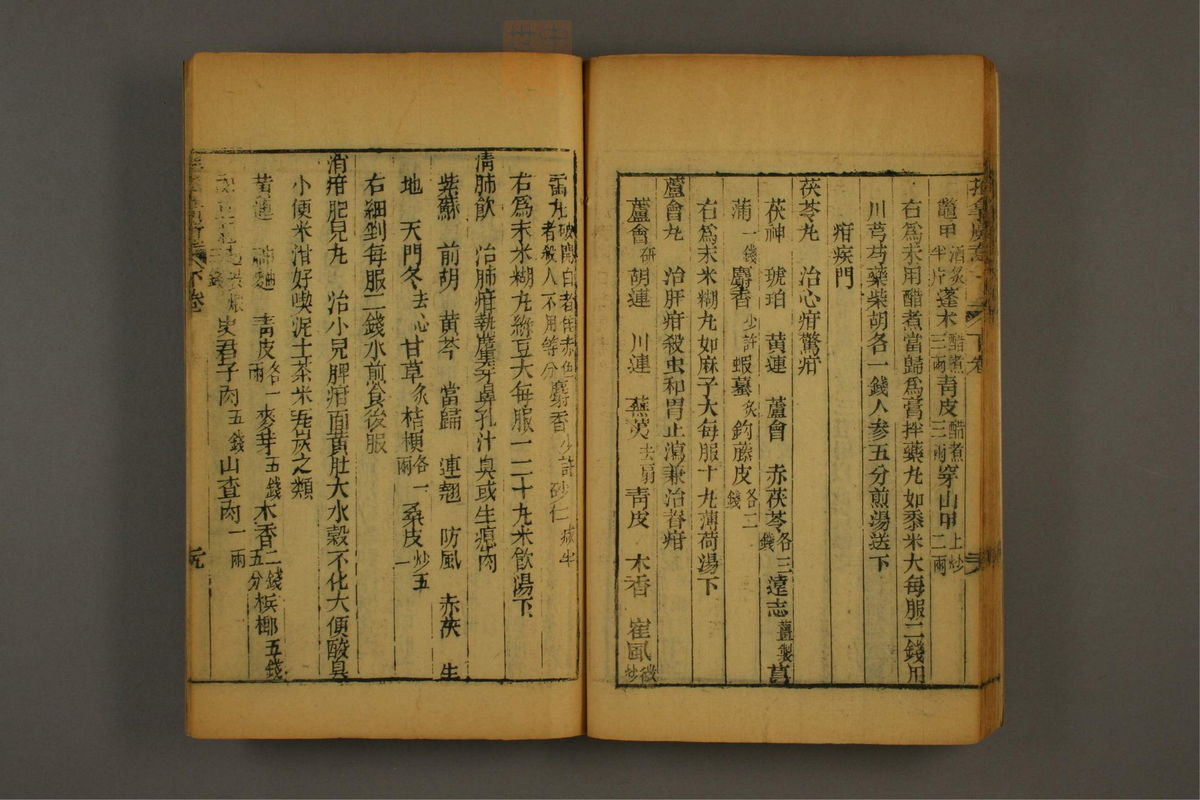 鼈甲酒炙半斤蓬术醋煮三兩青皮醋煮三兩穿山甲上炒二兩
右為末用醋煮當歸為膏拌藥丸如黍米大每服二錢用
川芎芍藥柴胡各一錢人参五分煎湯送下
疳疾門
茯苓丸　治心疳驚疳
茯神　琥珀　黃連　蘆會　赤茯苓各三錢遠志薑製菖
蒲一錢麝香少許蝦蟇炙鈎藤皮各二錢
右為末米糊丸如麻子大每服十丸薄荷湯下
蘆會丸　治肝疳殺虫和胃止瀉兼治脊疳
蘆會研胡連　川連　蕪荑去扇青皮　木香　雀
雷丸破開白者佳赤色者殺人不用等分麝香少許砂仁
右為末米糊丸綠豆大每服一二十丸米飲湯下
清肺飲　治肺疳執蒸穿鼻孔汁臭或生瘜肉
紫蘇　前胡　黃芩　當歸　連翹　防風　赤茯　生
地　天門冬去心甘草炙桔梗各一兩　桑皮炒五
右細剉每服二錢水煎食後服
消疳肥兒丸　治小兒脾疳面黃肚大水穀不化大便酸臭
小便米泔好喫泥土茶米炭之類
黃連　神麯　青皮各一兩　麥芽五錢木香二錢五分梹榔五錢
史君子肉五錢山查肉一兩
下卷